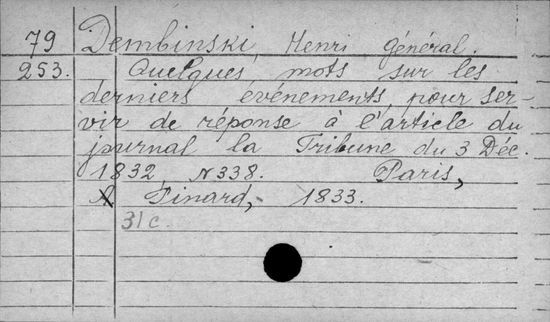 79 Dembinski, Henri Général.
253. Quelques mots sur les
derniers événements, pour ser-
vir de réponse à l'article du
journal la Tribune du 3 Déc.
1832, N 338. Paris,
A Pinard, 1833.
31c.